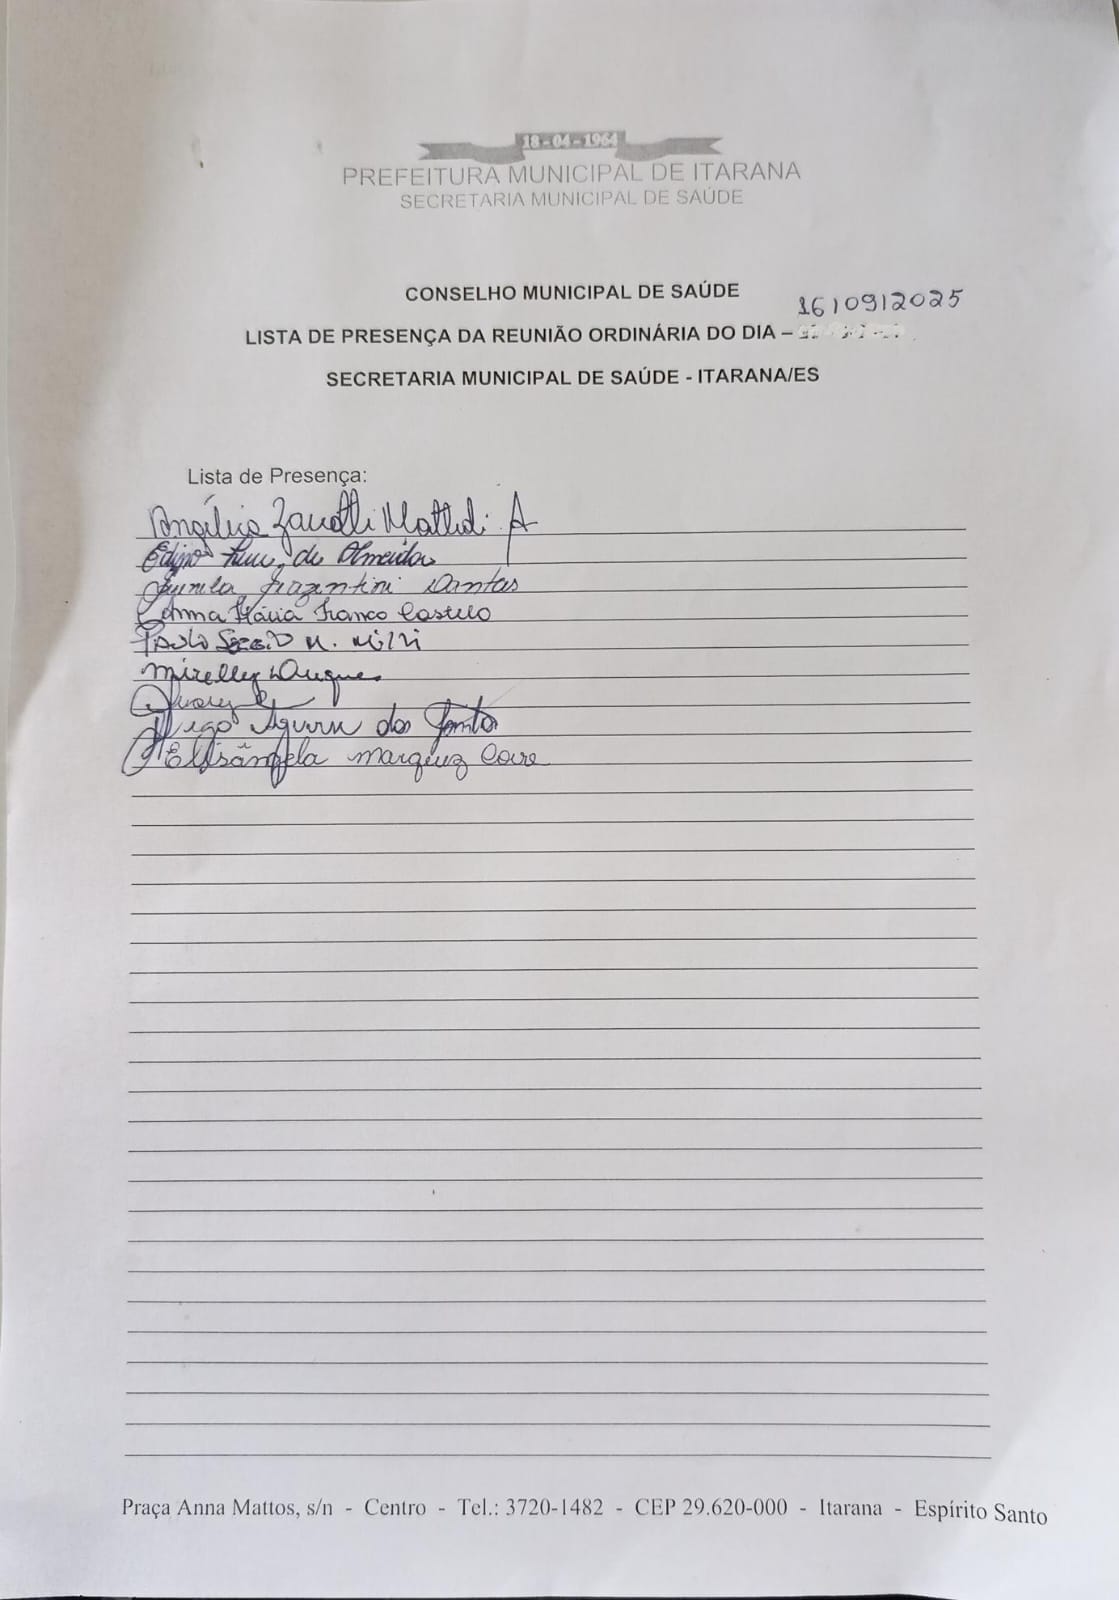 18-04-1964
PREFEITURA MUNICIPAL DE ITARANA
SECRETARIA MUNICIPAL DE SAÚDE
CONSELHO MUNICIPAL DE SAÚDE
16/09/2025
LISTA DE PRESENÇA DA REUNIÃO ORDINÁRIA DO DIA –
SECRETARIA MUNICIPAL DE SAÚDE - ITARANA/ES
Lista de Presença:
Angélica Zanotti Mattedi A
Edino de Almeida
Dantas
Anna Flávia Franco Castelo
Paulo Sergio M.
Mirelley Duques
dos Santos
Elisângela Marquez
Praça Anna Mattos, s/n - Centro - Tel.: 3720-1482 - CEP 29.620-000 - Itarana - Espírito Santo